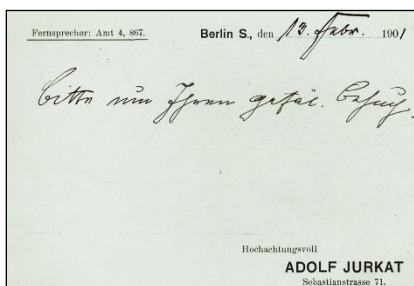 Fernsprecher: Amt 4, 867. Berlin S., den 13. Febr. 1901
bitte um Ihren gefäl. Besuch.
Hochachtungsvoll
ADOLF JURKAT
Sebastianstrasse 71.